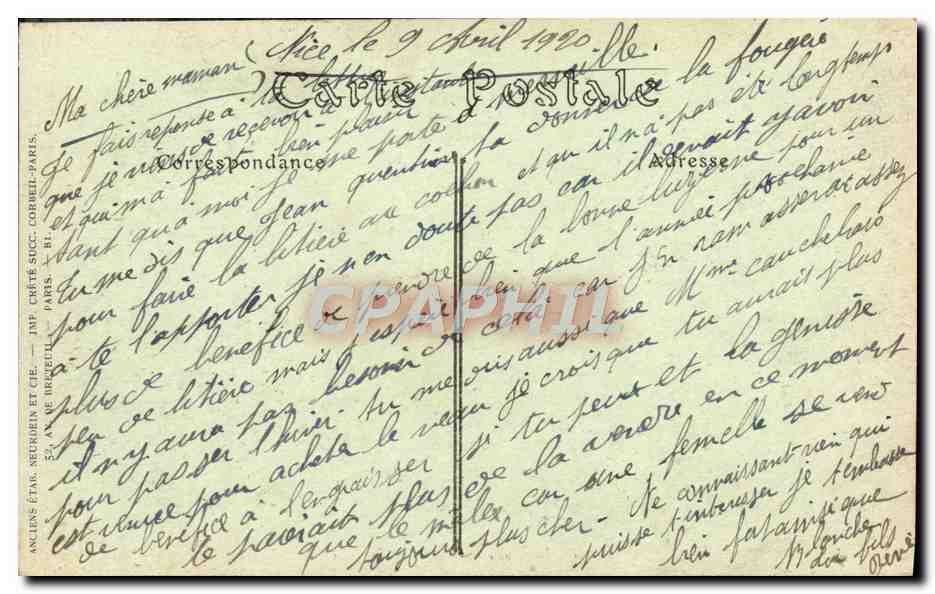 Nice le 9 Avril 1920
Ma chère maman
Carte Postale
Correspondance
Adresse
Je fais reponse à ta lettre
que je viens de recevoir à l'instant
et qui m'a fait bien plaisir
tant qu'à moi je me porte à merveille.
Tu me dis que Jean Quentin t'a donné de la fougère
pour faire la litière au cochon et qu'il n'a pas été longtemps
à te l'apporter je n'en doute pas car il devait y avoir
plus de benefice de vendre de la bonne luzerne pour un
peu de litière mais j'espère bien que l'année prochaine
il n'y aura pas besoin de cela car j'en ramasserai assez
pour passer l'hiver. tu me dis aussi que Mme Caucheloro
est venue pour acheter le veau je crois que tu aurais plus
de benefice à l'engraisser si tu peux et la genisse
te paraît plus de la vendre en ce moment
que le mâle car une femelle se vend
toujours plus cher - Ne connaissant rien qui
puisse t'interesser je t'embrasse
bien fort ainsi que
Blanche
ton fils
René
ANCIENS ÉTAB. NEURDEIN ET CIE. — IMP. CRÉTÉ SUCC. CORBEIL-PARIS.
52, AV. DE BRETEUIL — PARIS. — B1.
CPAPHIL